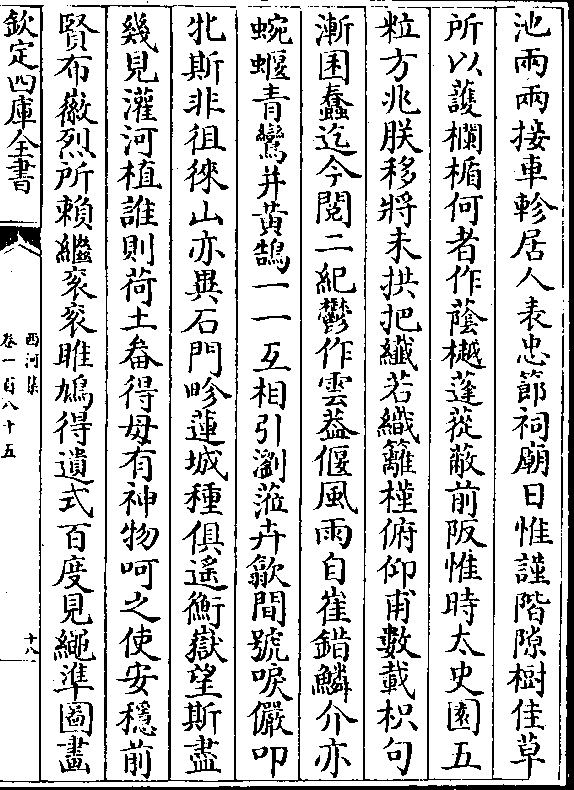 池兩兩接車軫居人表忠節祠廟日惟謹階隙樹佳草
所以護欄楯何者作蔭樾蓬蓯蔽前阪惟時太史園五
粒方兆朕移將未拱把纖若織籬槿俯仰甫數載枳句
漸困蠢迄今閱二紀鬱作雲葢偃風雨自崔錯鱗介亦
蜿蝘青鸞并黃鵠一一互相引瀏蒞卉歙間號唳儼叩
牝斯非徂徠山亦異石門畛蓮城種俱遙衡嶽望斯盡
幾見灌河植誰則荷土畚得毋有神物呵之使安穩前
賢布徽烈所賴繼衮衮雎鳩得遺式百度見繩準圖畫
欽定四庫全書
西河集
卷一百八十五
十八